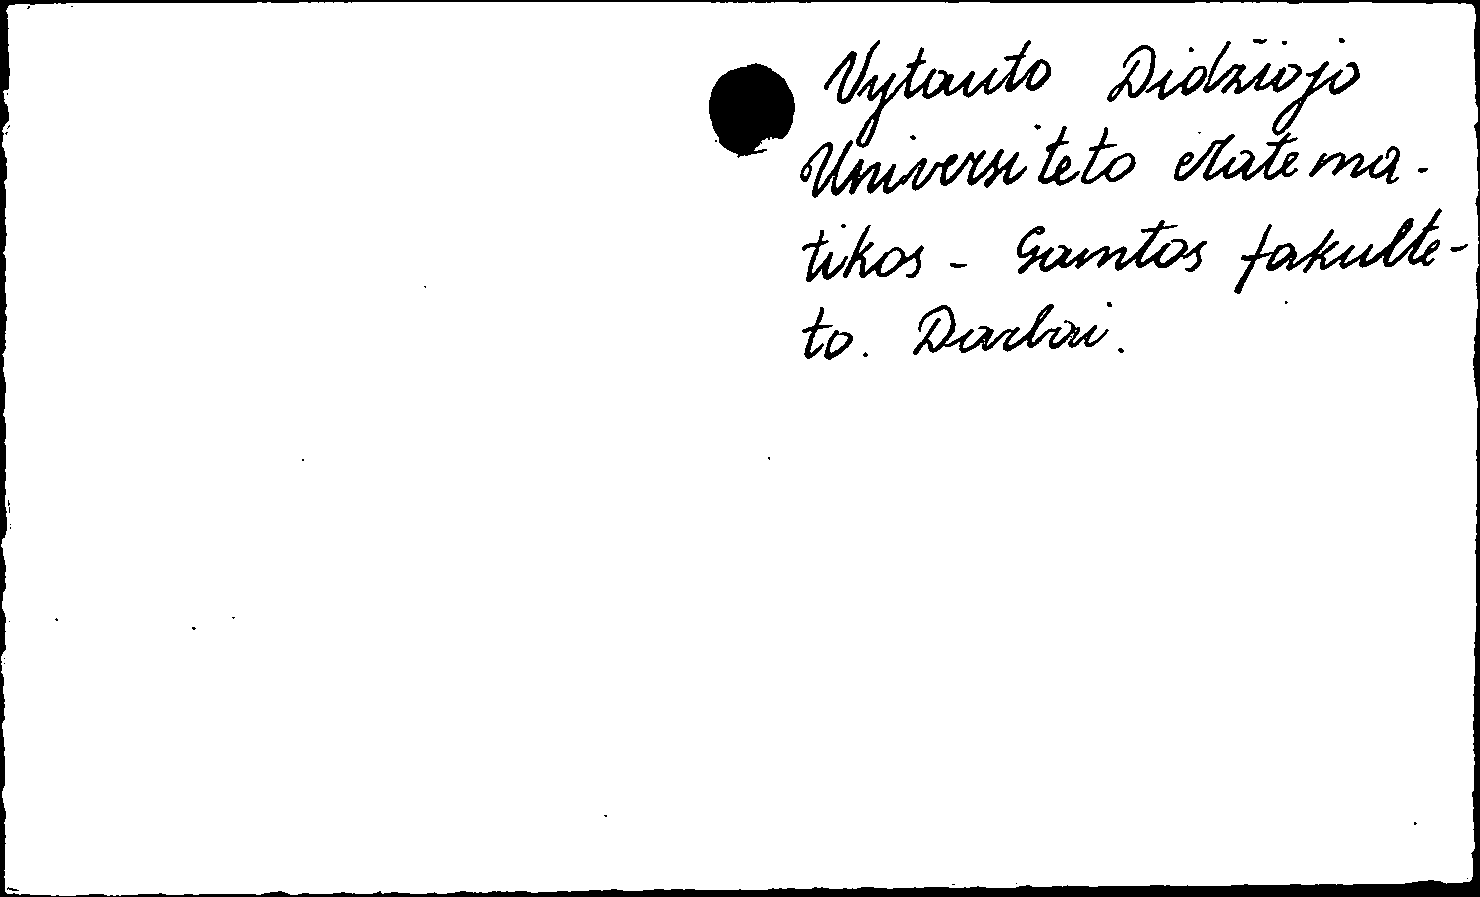 Vytauto Didžiojo
Universiteto Matema-
tikos - Gamtos fakulte-
to. Darbai.